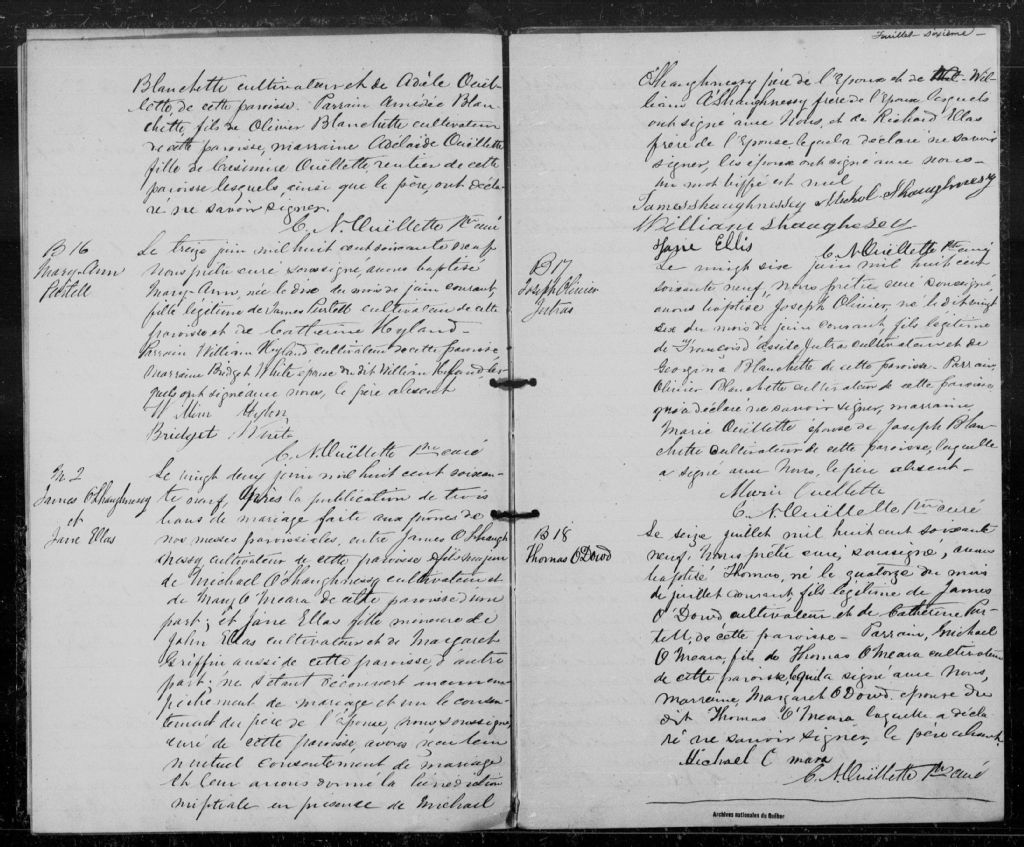 Blanchette cultivateur et de Adèle Ouel-
lette, de cette paroisse. Parrain Amédée Blan-
chette, fils de Olivier Blanchette cultivateur
de cette paroisse, marraine Adélaïde Ouellette
fille de Ouellette, rentier de cette
paroisse lesquels, ainsi que le père, ont décla-
ré ne savoir signer.
C. N. Ouëllette Ptre curé
B 16
Mary-Ann
Purtell
Le treize juin mil huit cent soixante neuf
Nous prêtre curé soussigné, avons baptisé
Mary-Ann, née le dix du mois de juin courant,
fille légitime de James Purtell cultivateur de cette
paroisse et de Catherine Hyland-
Parrain William Hyland cultivateur de cette paroisse
Marraine Bridget White épouse du dit William les-
quels ont signé avec nous, le père absent
Hylon
Bridget White
C. N. Ouëllette Ptre curé
M 2
James O'Shaughnessy
et
Jane Ellas
Le vingt deux juin mil huit cent soixan-
te neuf, Après la publication de trois
bans de mariage faite aux prônes de
nos messes paroissiales, entre James O'Shaugh-
nessy cultivateur de cette paroisse fils majeur
de Michael O'Shaughnessy cultivateur et
de Mary O'Meara de cette paroisse d'une
part; et Jane Ellas fille mineure de
John Ellas cultivateur et de Margaret
Griffin aussi de cette paroisse, d'autre
part; ne s'étant découvert aucun em-
pêchement de mariage et vu le consen-
tement du père de l'Epouse, nous soussigné,
curé de cette paroisse, avons reçu leur
mutuel consentement de mariage
et leur avons donné la bénédiction
nuptiale en présence de Michael
Feuillet sixième -
O'Shaughnessy père de l'Epoux et de Wil-
liam O'Shaughnessy frère de l'époux lesquels
ont signé avec Nous, et de Richard Ellas
frère de l'Epouse lequel a déclaré ne savoir
signer, les époux ont signé avec nous-
un mot biffé est nul
James Shaughnessey Michel Shaughnessy
William Shaughnessy
Jane Ellis
C. N. Ouëllette Ptre curé
B 17
Joseph Olivier
Jutras
Le vingt six juin mil huit cent
soixante neuf, nous prêtre curé soussigné,
avons baptisé Joseph Olivier, né le dit vingt
six du mois de juin courant, fils légitime
de François Jutras cultivateur et de
Georgina Blanchette de cette paroisse- Parrain,
Olivier Blanchette cultivateur de cette paroisse
qui a déclaré ne savoir signer, marraine,
Marie Ouellette épouse de Joseph Blan-
chette cultivateur de cette paroisse, laquelle
a signé avec Nous, le père absent-
Marie Ouellette
C. N. Ouëllette Ptre curé
B 18
Thomas O'Dowd
Le seize juillet mil huit cent soixante
neuf, Nous prêtre curé, soussigné, avons
baptisé Thomas, né le quatorze du mois
de juillet courant, fils légitime de James
O'Dowd cultivateur et de Catherine Pur-
tell, de cette paroisse- Parrain, Michael
O'Meara, fils de Thomas O'Meara cultivateur
de cette paroisse, lequel a signé avec Nous,
marraine, Margaret O'Dowd épouse du
dit Thomas O'Meara laquelle a décla-
ré ne savoir signer, le père absent.
Michael O mara
C. N. Ouëllette Ptre curé
Archives nationales du Québec